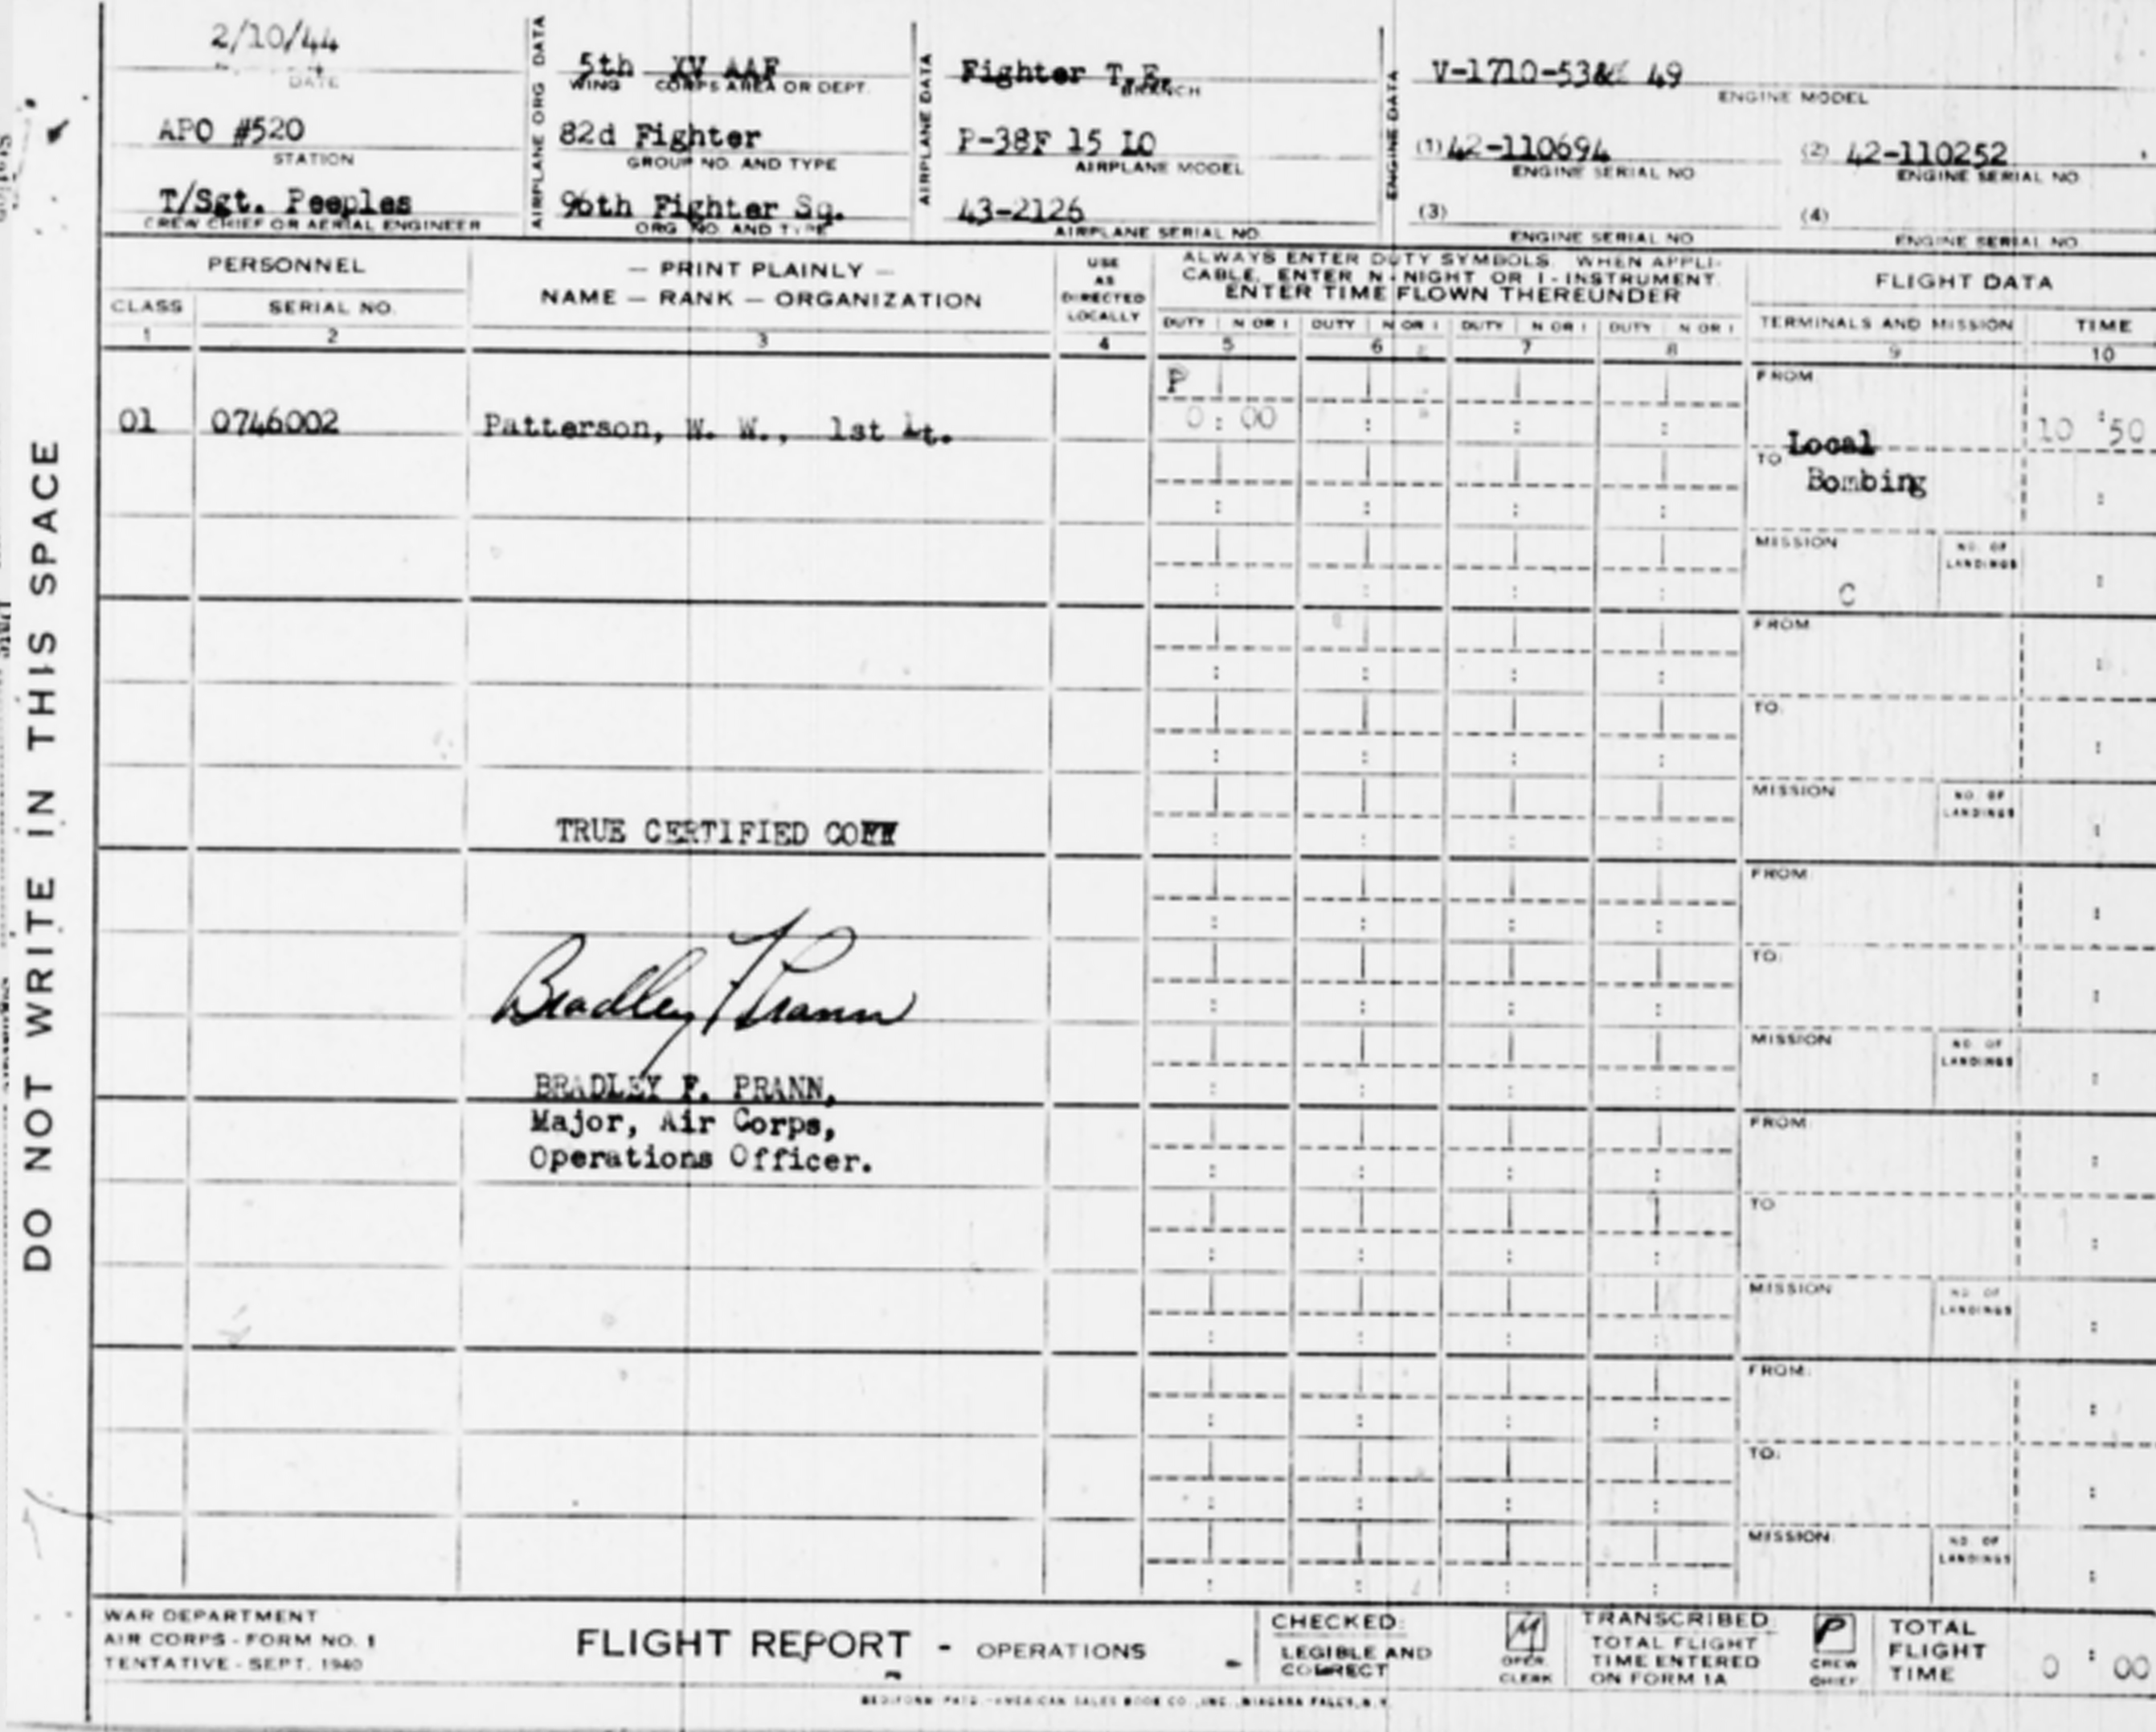 2/10/44
DATE
APO #520
STATION
T/Sgt. Peeples
CREW CHIEF OR AERIAL ENGINEER
AIRPLANE ORG DATA
5th XV AAF
WING CORPS AREA OR DEPT.
82d Fighter
GROUP NO. AND TYPE
96th Fighter Sq.
ORG. NO. AND TYPE
AIRPLANE DATA
Fighter T.E.
BRANCH
P-38F 15 LO
AIRPLANE MODEL
43-2126
AIRPLANE SERIAL NO.
ENGINE DATA
V-1710-53& 49
ENGINE MODEL
(1) 42-110694 (2) 42-110252
ENGINE SERIAL NO ENGINE SERIAL NO.
(3) (4)
ENGINE SERIAL NO ENGINE SERIAL NO.
PERSONNEL
CLASS SERIAL NO.
1 2
— PRINT PLAINLY —
NAME — RANK — ORGANIZATION
3
USE
AS
DIRECTED
LOCALLY
4
ALWAYS ENTER DUTY SYMBOLS. WHEN APPLI-
CABLE, ENTER N-NIGHT OR I-INSTRUMENT.
ENTER TIME FLOWN THEREUNDER
DUTY N OR I DUTY N OR I DUTY N OR I DUTY N OR I
5 6 7 8
FLIGHT DATA
TERMINALS AND MISSION TIME
9 10
01 0746002 Patterson, W. W., 1st Lt.
P
0 : 00
FROM
10 : 50
Local
TO
Bombing
MISSION NO. OF LANDINGS
C
FROM
TO:
MISSION NO. OF LANDINGS
TRUE CERTIFIED COPY
FROM:
TO:
MISSION NO. OF LANDINGS
Bradley F Prann
BRADLEY F. PRANN,
Major, Air Corps,
Operations Officer.
FROM:
TO
MISSION NO. OF LANDINGS
FROM:
TO:
MISSION: NO. OF LANDINGS
DO NOT WRITE IN THIS SPACE
WAR DEPARTMENT
AIR CORPS - FORM NO. 1
TENTATIVE - SEPT. 1940
FLIGHT REPORT - OPERATIONS
CHECKED:
LEGIBLE AND
CORRECT
M
OPER.
CLERK
TRANSCRIBED
TOTAL FLIGHT
TIME ENTERED
ON FORM 1A
P
CREW
CHIEF
TOTAL
FLIGHT
TIME
0 : 00
REDIFORM PATD.-AMERICAN SALES BOOK CO., INC., NIAGARA FALLS, N.Y.